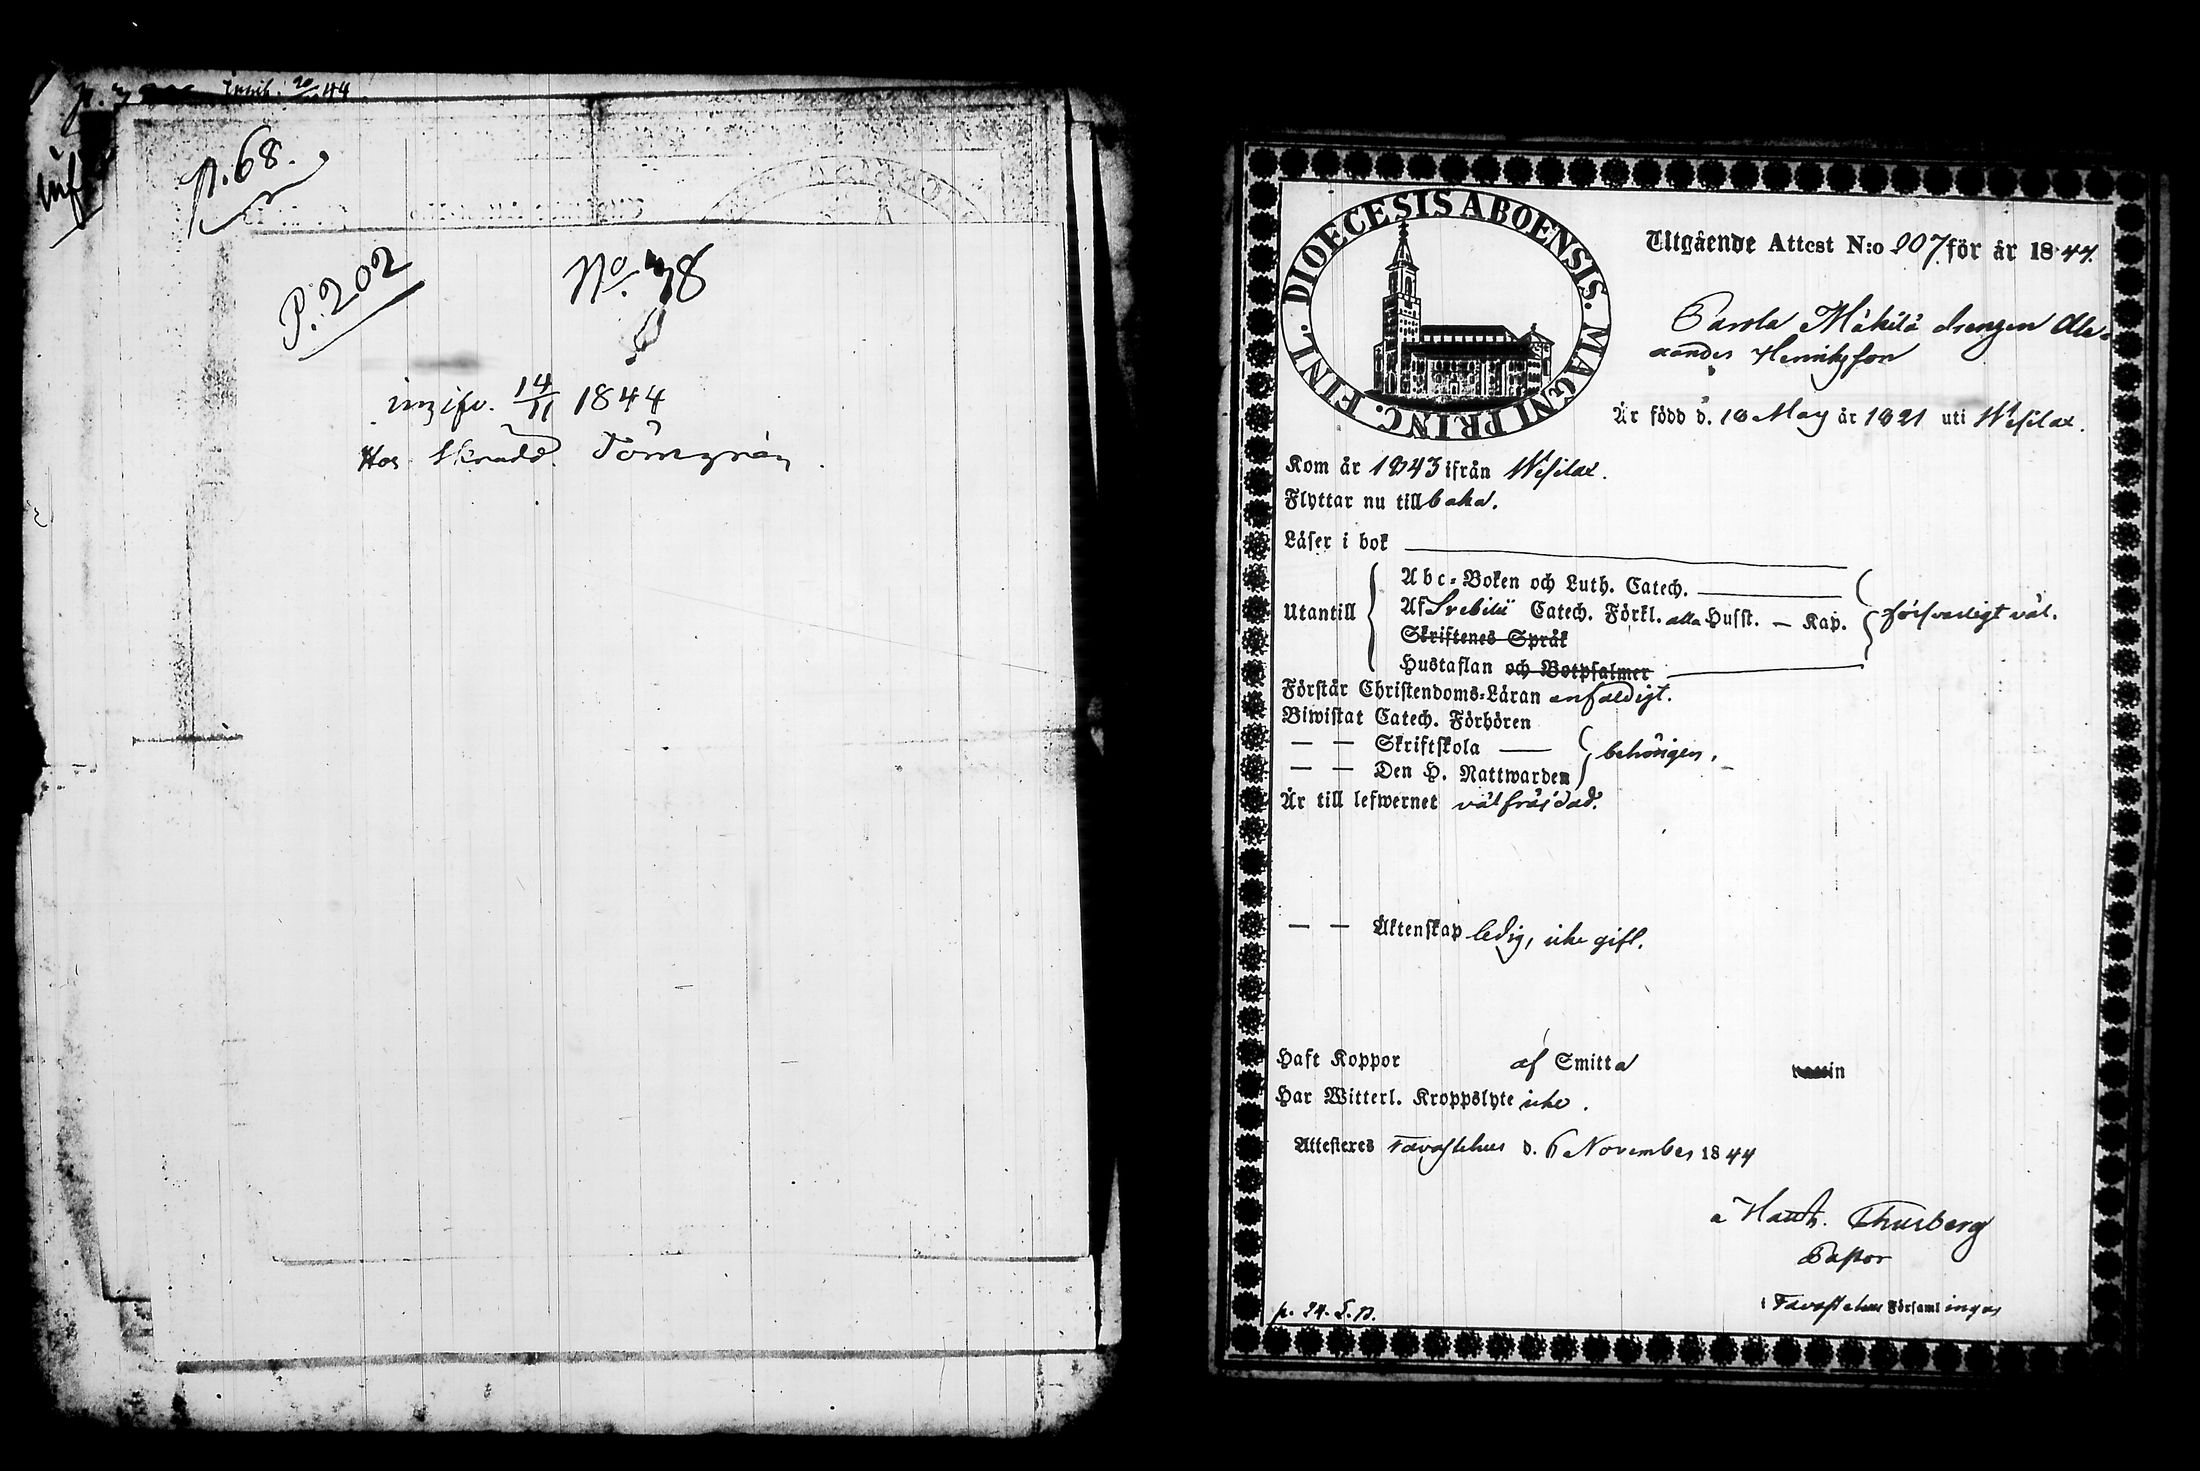 Innib. 20 44
N. 68.
P. 202
No. 78
14/11 1844
Hos Skradd. Törngrén.
DIOECESIS ABOENSIS. MAGNI PRINC. FINL.
Utgående Attest N:o 207 för år 1844.
Parola Mäkilä drengen Ale-
xander Henriksson
Är född d. 18 May år 1821 uti Wesilax.
Kom år 1843 ifrån Wesilax.
Flyttar nu tillbaka.
Läser i bok
Utantill
Abc-Boken och Luth. Catech.
Af Svebilii Catech. Förkl. alla Husst. — Kap.
försvarligt väl.
Skriftenes Språk
Hustaflan och Botpsalmer
Förstår Christendoms-Läran enfaldigt.
Biwistat Catech. Förhören
— — Skriftskola —
behörigen.
— — Den H. Nattwarden
Är till lefwernet välfräjdad.
— — Äktenskap ledig, icke gift.
Haft Koppor af Smitta
Har Witterl. Kroppslyte icke.
Attesteres Tavastehus d. 6 November 1844
Thusberg
Pastor
i Tavastehus Församlingar
p. 24.